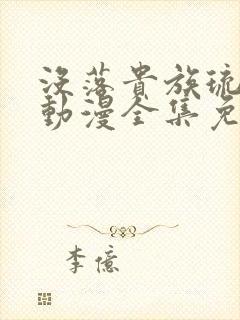 没落貴族琉
動漫全集免
李億